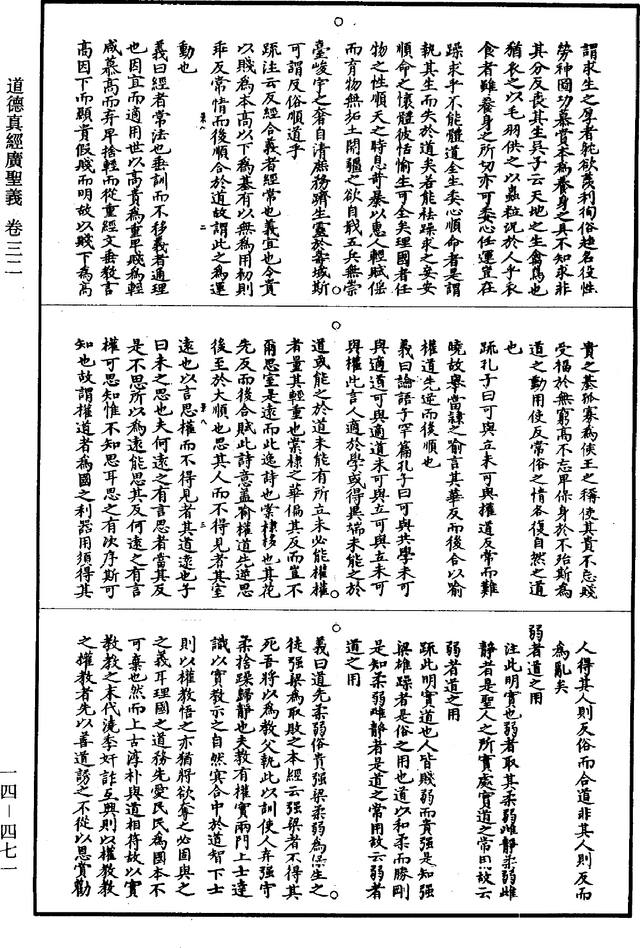 道德真經廣聖義 卷三二
一四—四七一
謂求生之厚者耽欲羨利徇俗趍名役性
勞神圖功慕賞本為養身之具不知求非
其分反喪其生吳子云天地之生禽鳥也
猶衣之以毛羽供之以蟲粒況於人乎衣
食者雖養身之所切亦可委心任運豈在
躁求乎不能體道全生委心順命者是謂
執其生而失於道矣若能袪躁求之妄安
順命之懷體彼恬愉生可全矣理國者任
物之性順天之時息苛暴以惠人輕賦傜
而育物無拓土開疆之欲自戢五兵無崇
臺峻宇之奢自清庶務躋生靈於壽域斯
可謂反俗順道乎
疏注云反經合義者經常也義宜也令貴
以賤為本高以下為基有以無為用初則
乖反常情而後順合於道故謂此之為運
動也
義曰經者常法也垂訓而不移義者通理
也因宜而適用世以高貴為重卑賤為輕
咸慕高而弃卑捨輕而從重經文垂教言
高因下而顯貴假賤而明故以賤下為高
貴之基孤寡為侯王之稱使其貴不忘賤
受福於無窮高不忘卑保身於不殆斯為
道之動用使反常俗之情各復自然之道
也
疏孔子曰可與立未可與權道反常而難
曉故舉當棣之喻言其華反而後合以喻
權道先逆而後順也
義曰論語子罕篇孔子曰可與共學未可
與適道可與適道未可與立可與立未可
與權此言人適於學或得異端未能之於
道或能之於道未能有所立未必能權權
者量其輕重也棠棣之華偏其反而豈不
爾思室是遠而此逸詩也棠棣栘也其花
先反而後合賦此詩意蓋喻權道先逆思
後至於大順也思其人而不得見者其室
遠也以言思權而不得見者其道遠也子
曰未之思也夫何遠之有言思者當其反
是不思所以為遠能思其反何遠之有言
權可思知惟不知思耳思之有次序斯可
知也故謂權道者為國之利器用須得其
人得其人則反俗而合道非其人則反而
為亂矣
弱者道之用
注此明實也弱者取其柔弱雌靜柔弱雌
靜者是聖人之所實處實道之常用故云
弱者道之用
疏此明實道也人皆賤弱而貴強是知強
梁雄躁者是俗之用也道以和柔而勝剛
是知柔弱雌靜者是道之常用故云弱者
道之用
義曰道先柔弱俗貴強梁柔弱為保生之
徒強梁為取敗之本經云強梁者不得其
死吾將以為教父執此以訓使人弃強守
柔捨躁歸靜也夫教有權實兩門上士達
識以實教示之自然冥合中於道智下士
則以權教悟之亦猶將欲奪之必固與之
之義耳理國之道務先愛民民為國本不
可棄也然而上古淳朴與道相得故以實
教教之末代澆季奸詐互興則以權教教
之權教者先以善道誘之不從以恩賞勸